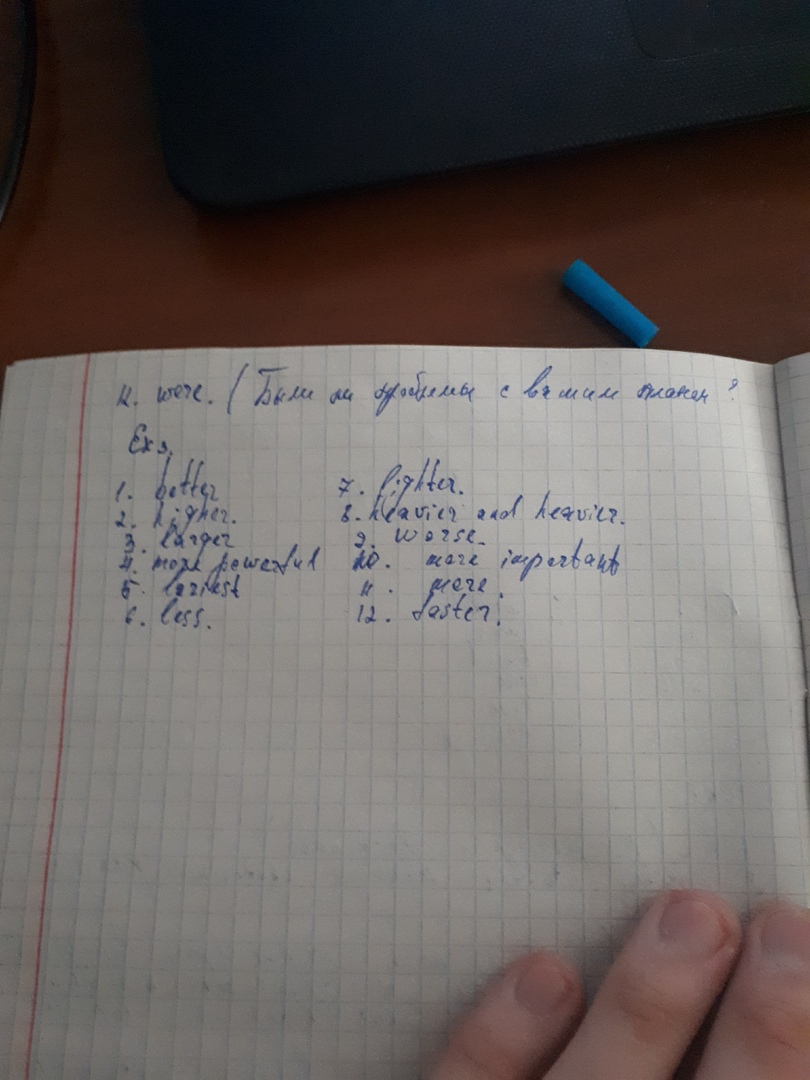 12. were. (Были ли проблемы с вашим планом?
Ex3.
1. better
2. higher.
3. larger
4. more powerful
5.
6. less.
7. lighter.
8. heavier and heavier.
9. worse.
10. more important
11. more.
12. faster.